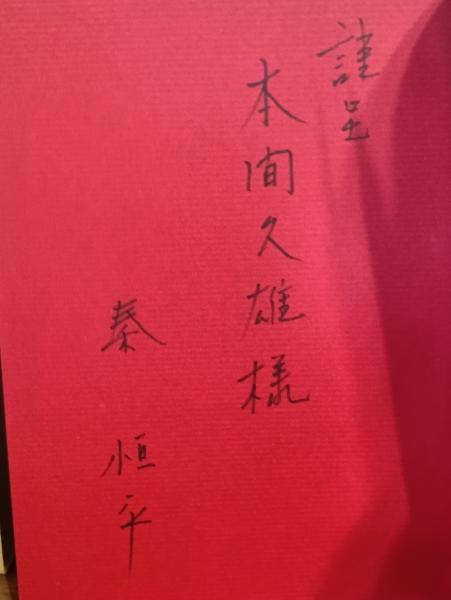 謹呈
本間久雄様
秦 恒平